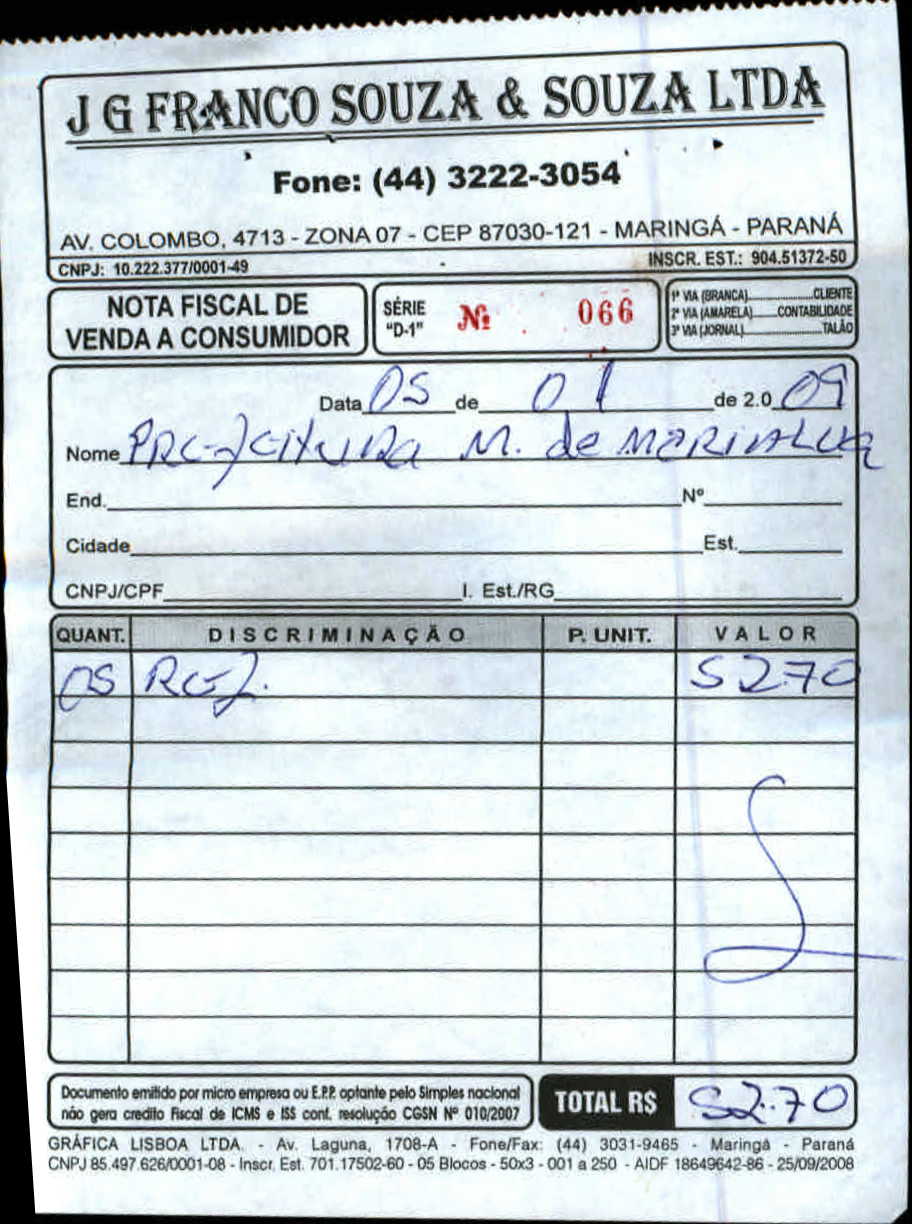 J G FRANCO SOUZA & SOUZA LTDA
Fone: (44) 3222-3054
AV. COLOMBO, 4713 - ZONA 07 - CEP 87030-121 - MARINGÁ - PARANÁ
CNPJ: 10.222.377/0001-49 INSCR. EST.: 904.51372-50
NOTA FISCAL DE
VENDA A CONSUMIDOR
SÉRIE
"D-1"
Nº 066
1ª VIA (BRANCA)..................CLIENTE
2ª VIA (AMARELA)........CONTABILIDADE
3ª VIA (JORNAL)....................TALÃO
Data 05 de 01 de 2.0 09
Nome Prefeitura M. de Marialva
End. Nº
Cidade Est.
CNPJ/CPF I. Est./RG
QUANT. DISCRIMINAÇÃO P. UNIT. VALOR
05 Ref. 52.70
Documento emitido por micro empresa ou E.P.P. optante pelo Simples nacional
não gera credito Fiscal de ICMS e ISS conf. resolução CGSN Nº 010/2007
TOTAL R$ 52.70
GRÁFICA LISBOA LTDA. - Av. Laguna, 1708-A - Fone/Fax: (44) 3031-9465 - Maringá - Paraná
CNPJ 85.497.626/0001-08 - Inscr. Est. 701.17502-60 - 05 Blocos - 50x3 - 001 a 250 - AIDF 18649642-86 - 25/09/2008